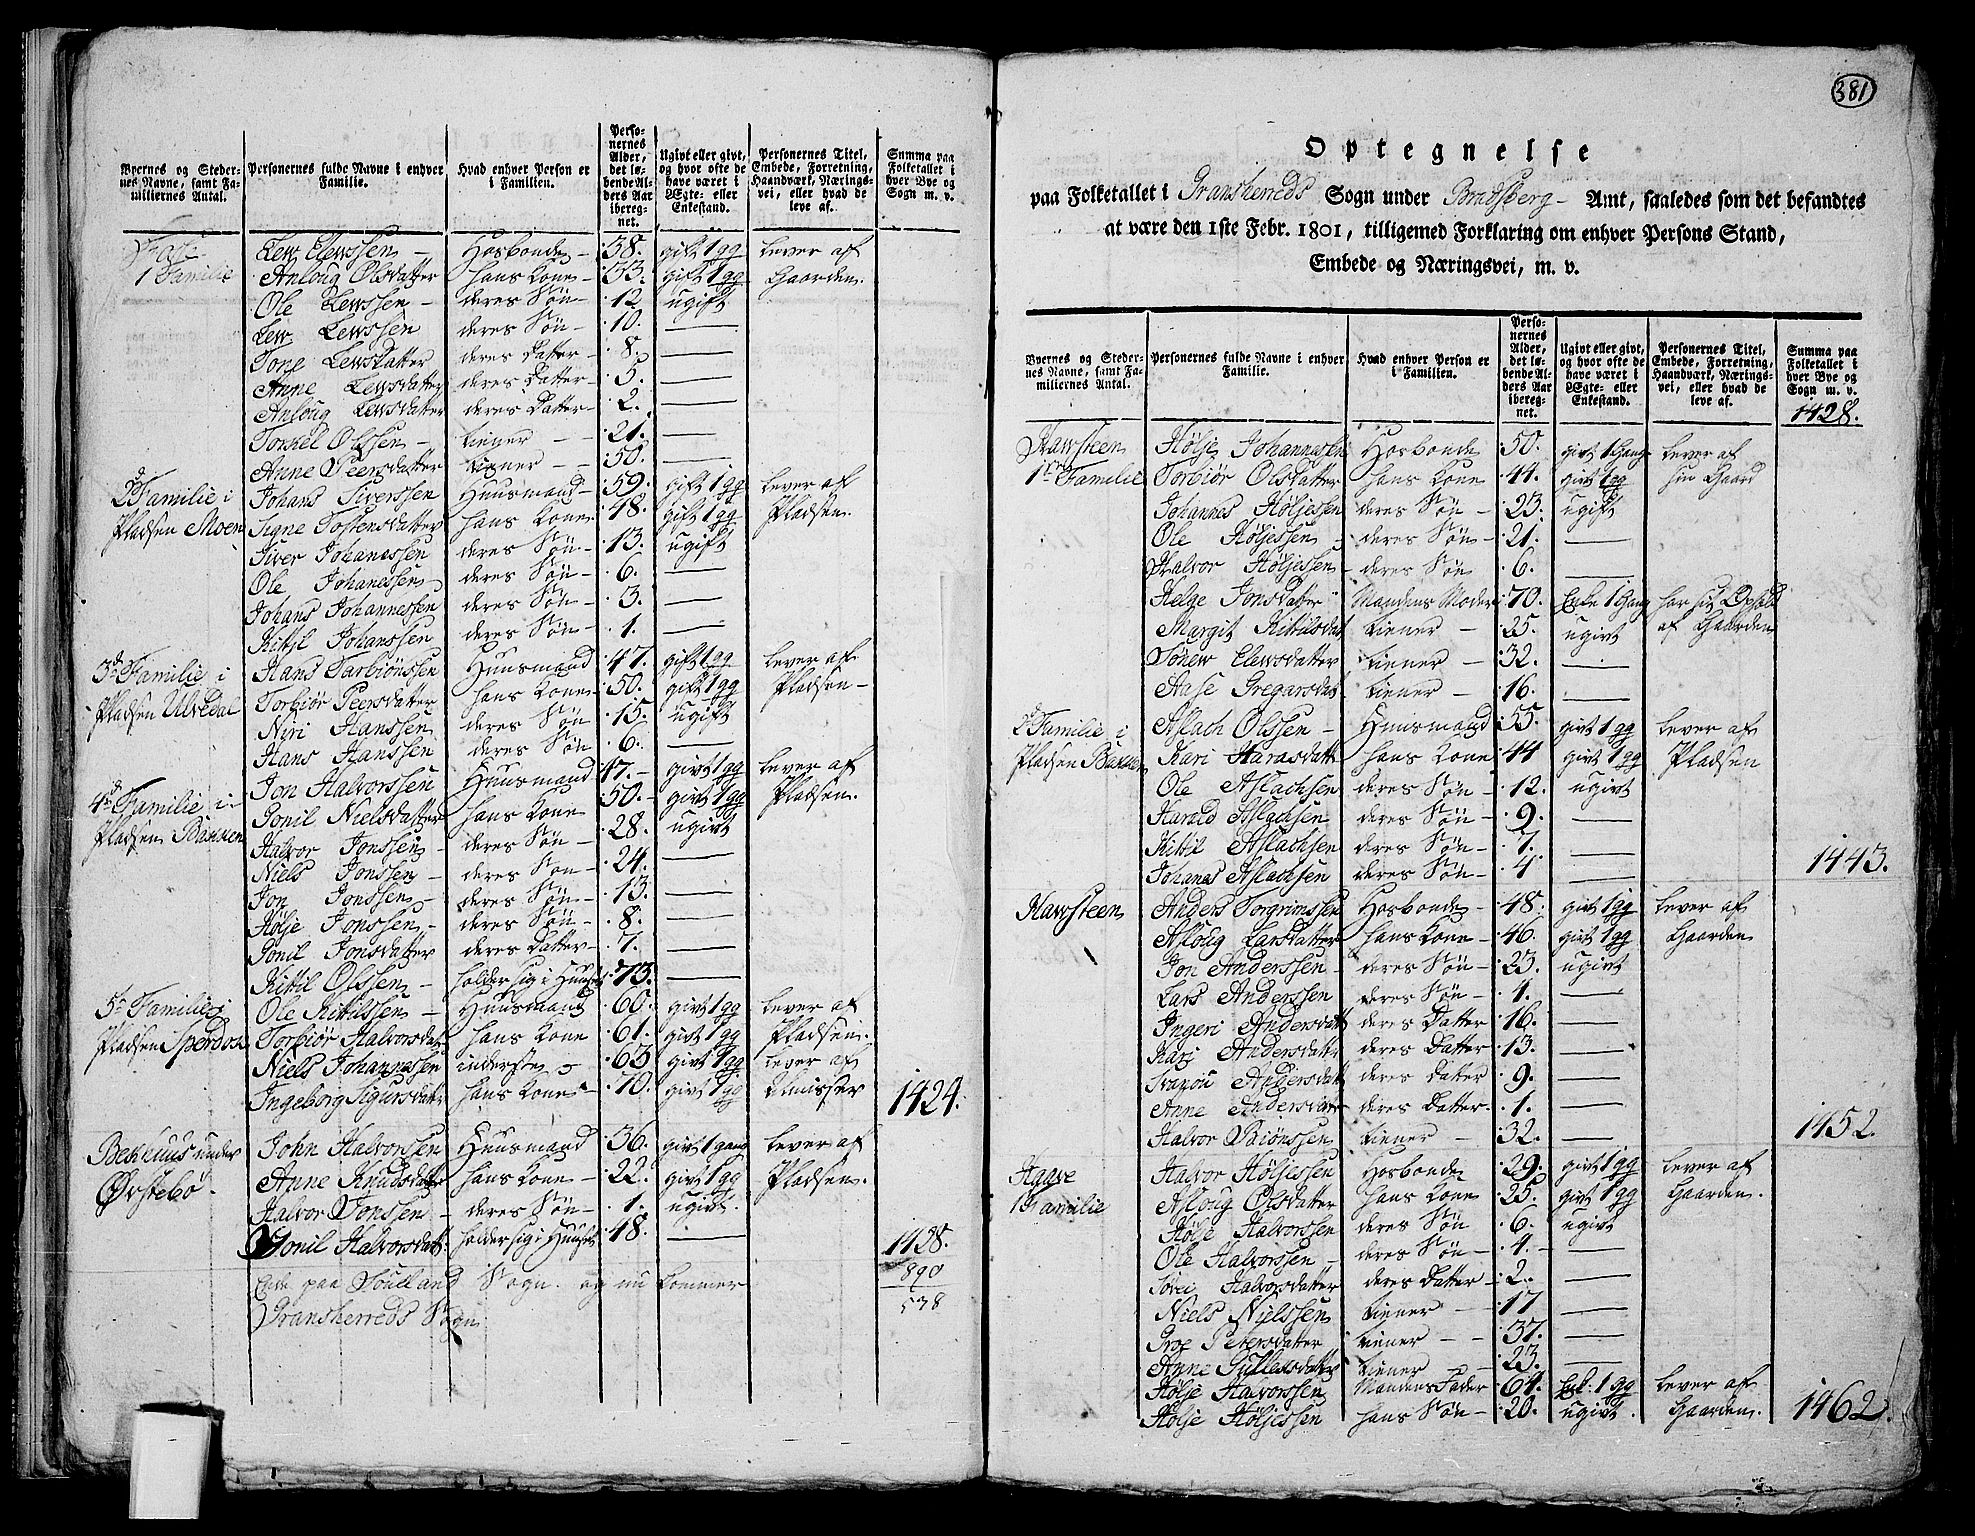 Byernes og Steder-
nes Navne, samt Fa-
miliernes Antal.
Personernes fulde Navne i enhver
Familie.
Hvad enhver Person er
i Familien.
Perso-
nernes
Alder,
det lø-
bende Al-
ders Aar
iberegnet.
Ugivt eller givt,
og hvor ofte de
have været i
Ægte- eller
Enkestand.
Personernes Titel,
Embede, Forretning,
Haandværk, Nærings-
vei, eller hvad de
leve af.
Summa paa
Folketallet i
hver Bye og
Sogn m. v.
Lew Elewssen Hosbonde 58. gift 1 gg lever af
1 Familie Anloug Olsdatter hans Kone 53. gift 1 gg Gaarden
Ole Lewssen deres Søn 12. ugift
Lew Lewssen deres Søn 10. —
Tone Lewsdatter deres Datter 8. —
Anne Lewsdatter deres Datter 5. —
Anloug Lewsdatter deres Datter 2. —
Torkel Olssen tiener 21. —
Anne Peersdatter tiener 50. —
2d Familie i Johans Siverssen Huusmand 59. gift 1 gg lever af
Pladsen Moen Signe Tostensdatter hans Kone 48. gift 1 gg Pladsen.
Siver Johanessen deres Søn 13. ugift
Ole Johanessen deres Søn 6. —
Johans Johannessen deres Søn 3. —
Kittil Johanssen deres Søn 1. —
3d Familie i Hans Tarbiönssen Huusmand 47. gift 1 gg lever af
Pladsen Ulvedal Torbiør Peersdatter hans Kone 50. gift 1 gg Pladsen
Niri Hanssen deres Søn 15. ugift
Hans Hanssen deres Søn 6. —
4d Familie i Jon Halvorssen Huusmand 47. givt 1 gg lever af
Pladsen Bakken Gonil Nielsdatter hans Kone 50. givt 1 gg Pladsen.
Halvor Jonssen deres Søn 28. ugivt
Niels Jonssen deres Søn 24. —
Jon Jonssen deres Søn 13. —
Hølje Jonssen deres Søn 8. —
Gonil Jonsdatter deres Datter 7. —
Kittil Olssen holder sig i Huuset 73. —
5t Familie i Ole Kittilssen Huusmand 60. givt 1 gg lever af
Pladsen Torbiør Halvorsdat hans Kone 61. givt 1 gg Pladsen.
Niels Johannessen inderste 63 givt 1 gg lever af
Ingeborg Sigursdatter hans Kone 70. givt 1 gg Almisser 1424.
Bekhuus under John Halvorssen Huusmand 36. givt 1 gang lever af
Ørstebö. Anne Knudsdatter hans Kone 22. givt 1 gg Pladsen.
Halvor Jonssen deres Søn 1. ugivt.
Gonil Halvorsdatt holder sig i Huuset 48. — 1428.
Ende paa Souland Sogn og nu kommer 890
Gransherreds Sogn 538
381
Optegnelse
paa Folketallet i Gransherreds Sogn under Bradsberg Amt, saaledes som det befandtes
at være den 1ste Febr. 1801, tilligemed Forklaring om enhver Persons Stand,
Embede og Næringsvei, m. v.
Byernes og Steder-
nes Navne, samt Fa-
miliernes Antal.
Personernes fulde Navne i enhver
Familie.
Hvad enhver Person er
i Familien.
Perso-
nernes
Alder,
det lø-
bende Al-
ders Aar
iberegnet.
Ugivt eller givt,
og hvor ofte de
have været i
Ægte- eller
Enkestand.
Personernes Titel,
Embede, Forretning,
Haandværk, Nærings-
vei, eller hvad de
leve af.
Summa paa
Folketallet i
hver Bye og
Sogn m. v.
1428.
Hawsteen Hølje Johannesen Hosbonde 50. givt 1 Gang lever af
1te Familie Torbiør Olsdatter hans Kone 44. givt 1 gg sin Gaard
Johannes Höljessen deres Søn 23. ugift
Ole Höljessen deres Søn 21. —
Halvor Höljessen deres Søn 6. —
Helge Jonsdatter Mandens Moder 70. Enke 1 Gang har sit Ophold
Margit Kittilsdat tiener 25. ugivt af Gaarden
Tönew Elewsdatter tiener 32. —
Aase Gregarsdat tiener 16. —
2d Familie i Aslach Olssen Huusmand 55. givt 1 gg lever af
Pladsen Bakken Kari Haraasdatt hans Kone 44 givt 1 gg Pladsen
Ole Aslachsen deres Søn 12. ugivt
Harald Aslachsen deres Søn 9. —
Kittil Aslachsen deres Søn 7. —
Johanes Aslachsen deres Søn 4. — 1443.
Hawsteen Anders Torgrimssen Hosbonde 48. givt 1 gg lever af
Asloug Larsdatter hans Kone 46. givt 1 gg Gaarden
Jon Anderssen deres Søn 23. ugivt
Lars Anderssen deres Søn 4. —
Ingeri Andersdatt deres Datter 16. —
Kari Andersdatter deres Datter 13. —
Svanou Andersdatt deres Datter 9. —
Anne Andersdatter deres Datter 1. —
Halvor Biönssen tiener 32. — 1452.
Hagave Halvor Höljessen Hosbonde 29. givt 1 gg lever af
1 Familie Asloug Olsdatter hans Kone 25. givt 1 gg Gaarden.
Hölje Halvorssen deres Søn 6. ugivt
Ole Halvorssen deres Søn 4. —
Halvorsdatter deres Datter 2. —
Niels Nielssen tiener 17 —
Groe Petersdatter tiener 37. —
Anne Gullessdatter tiener 23. —
Hölje Halvorssen Mandens Fader 64. Enk. 1 gg lever af
Hölje Höljessen hans Søn 20. ugivt. Gaarden. 1462.